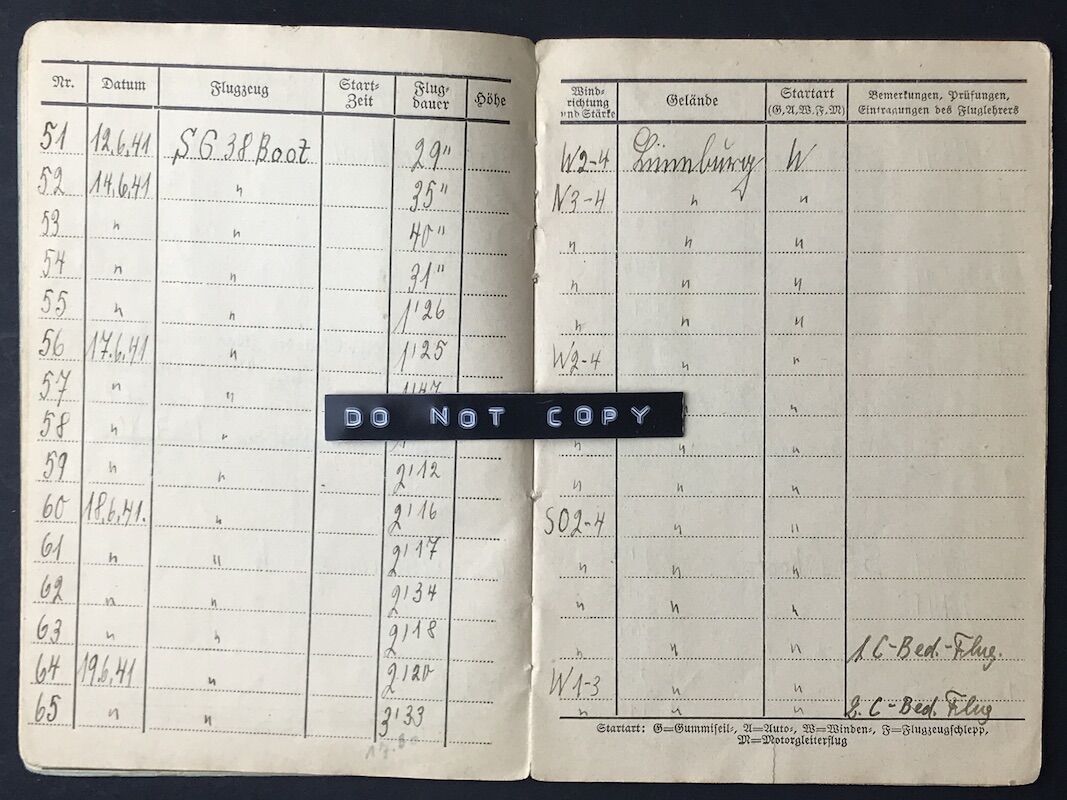 Nr. Datum Flugzeug Start-Zeit Flug-dauer Höhe
51 12.6.41 SG 38 Boot 29"
52 14.6.41 " 35"
53 " " 40"
54 " " 31"
55 " " 1'26
56 17.6.41 " 1'25
57 " "
58 " "
59 " " 2'12
60 18.6.41. " 2'16
61 " " 2'17
62 " " 2'34
63 " " 2'18
64 19.6.41 " 2'20
65 " " 3'33
DO NOT COPY
Wind-richtung und Stärke Gelände Startart (G,A,W,F,M) Bemerkungen, Prüfungen, Eintragungen des Fluglehrers
W2-4 Lüneburg W
N3-4 " "
" " "
" " "
" " "
W2-4 " "
"
" " "
" " "
SO2-4 " "
" " "
" " "
" " " 1 C-Bed.-Flug.
W1-3 " "
" " " 2. C-Bed. Flug
Startart: G=Gummiseil-, A=Auto-, W=Winden-, F=Flugzeugschlepp,
M=Motorgleiterflug